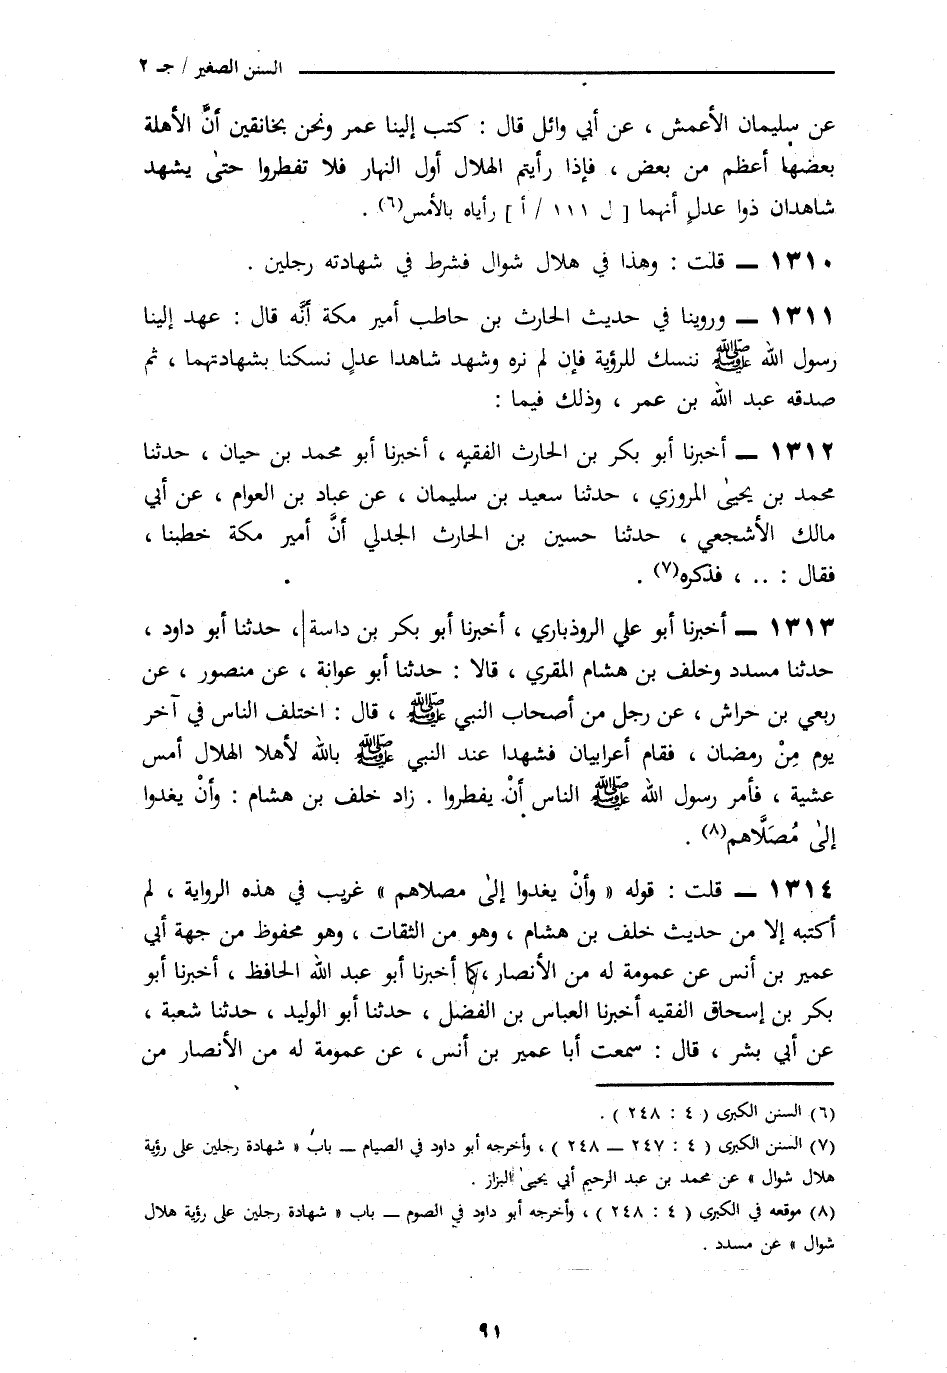 السنن الصغير / جـ ٢
عن سليمان الأعمش ، عن أبي وائل قال : كتب إلينا عمر ونحن بخانقين أنَّ الأهلة
بعضها أعظم من بعض ، فإذا رأيتم الهلال أول النهار فلا تفطروا حتىٰ يشهد
شاهدان ذوا عدلٍ أنهما [ ل ١١١ / أ ] رأياه بالأمس(٦) .
١٣١٠ ــ قلت : وهذا في هلال شوال فشرط في شهادته رجلين .
١٣١١ ــ وروينا في حديث الحارث بن حاطب أمير مكة أنَّه قال : عهد إلينا
رسول الله ﷺ ننسك للرؤية فإن لم نره وشهد شاهدا عدلٍ نسكنا بشهادتهما ، ثم
صدقه عبد الله بن عمر ، وذلك فيما :
١٣١٢ ــ أخبرنا أبو بكر بن الحارث الفقيه ، أخبرنا أبو محمد بن حيان ، حدثنا
محمد بن يحيىٰ المروزي ، حدثنا سعيد بن سليمان ، عن عباد بن العوام ، عن أبي
مالك الأشجعي ، حدثنا حسين بن الحارث الجدلي أنَّ أمير مكة خطبنا ،
فقال : .. ، فذكره(٧) .
١٣١٣ ــ أخبرنا أبو علي الروذباري ، أخبرنا أبو بكر بن داسة ، حدثنا أبو داود ،
حدثنا مسدد وخلف بن هشام المقري ، قالا : حدثنا أبو عوانة ، عن منصور ، عن
ربعي بن حراش ، عن رجل من أصحاب النبي ﷺ ، قال : اختلف الناس في آخر
يوم مِنْ رمضان ، فقام أعرابيان فشهدا عند النبي ﷺ بالله لأهلا الهلال أمس
عشية ، فأمر رسول الله ﷺ الناس أنْ يفطروا . زاد خلف بن هشام : وأنْ يغدوا
إلىٰ مُصَلَّاهم(٨) .
١٣١٤ ــ قلت : قوله « وأنْ يغدوا إلىٰ مصلاهم » غريب في هذه الرواية ، لم
أكتبه إلا من حديث خلف بن هشام ، وهو من الثقات ، وهو محفوظ من جهة أبي
عمير بن أنس عن عمومة له من الأنصار ، كما أخبرنا أبو عبد الله الحافظ ، أخبرنا أبو
بكر بن إسحاق الفقيه أخبرنا العباس بن الفضل ، حدثنا أبو الوليد ، حدثنا شعبة ،
عن أبي بشر ، قال : سمعت أبا عمير بن أنس ، عن عمومة له من الأنصار من
(٦) السنن الكبرى ( ٤ : ٢٤٨ ) .
(٧) السنن الكبرى ( ٤ : ٢٤٧ ــ ٢٤٨ ) ، وأخرجه أبو داود في الصيام ــ باب « شهادة رجلين على رؤية
هلال شوال » عن محمد بن عبد الرحيم أبي يحيىٰ البزاز .
(٨) موقعه في الكبرى ( ٤ : ٢٤٨ ) ، وأخرجه أبو داود في الصوم ــ باب « شهادة رجلين على رؤية هلال
شوال » عن مسدد .
٩١